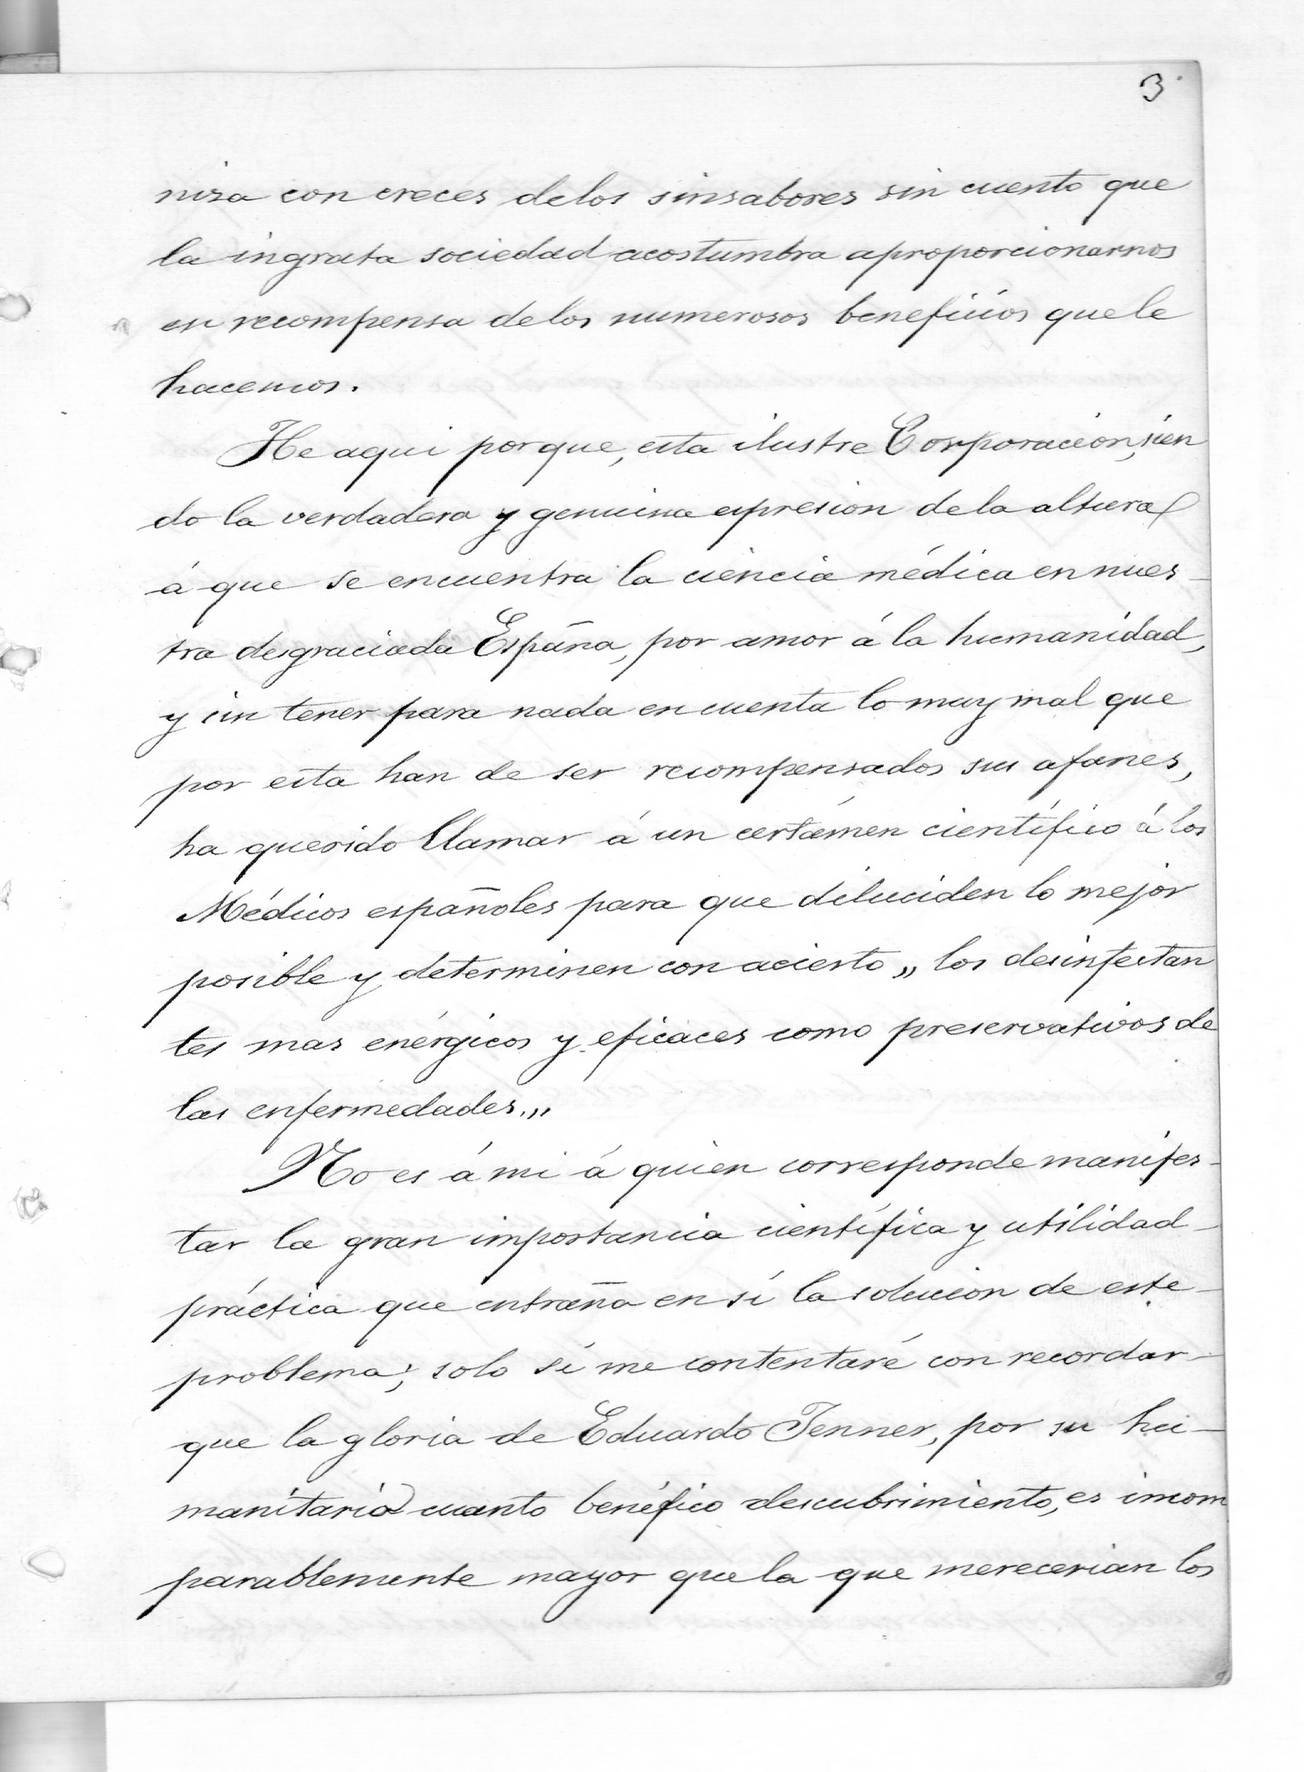 3
niza con creces de los sinsabores sin cuento que
la ingrata sociedad acostumbra a proporcionarnos
en recompensa de los numerosos beneficios que le
hacemos.
He aqui porque, esta ilustre Corporacion, sien
do la verdadera y genuina expresion de la altura
á que se encuentra la ciencia médica en nues-
tra desgraciada España, por amor á la humanidad,
y sin tener para nada en cuenta lo muy mal que
por esta han de ser recompensados sus afanes,
ha querido llamar á un certámen científico á los
Médicos españoles para que diluciden lo mejor
posible y determinen con acierto „ los desinfectan
tes mas enérgicos y eficaces como preservativos de
las enfermedades.„
No es á mi á quien corresponde manifes-
tar la gran importancia científica y utilidad
práctica que entraña en sí la solucion de este
problema; solo sí me contentaré con recordar
que la gloria de Eduardo Jenner, por su hu-
manitario cuanto benéfico descubrimiento, es incom
parablemente mayor que la que merecerian los